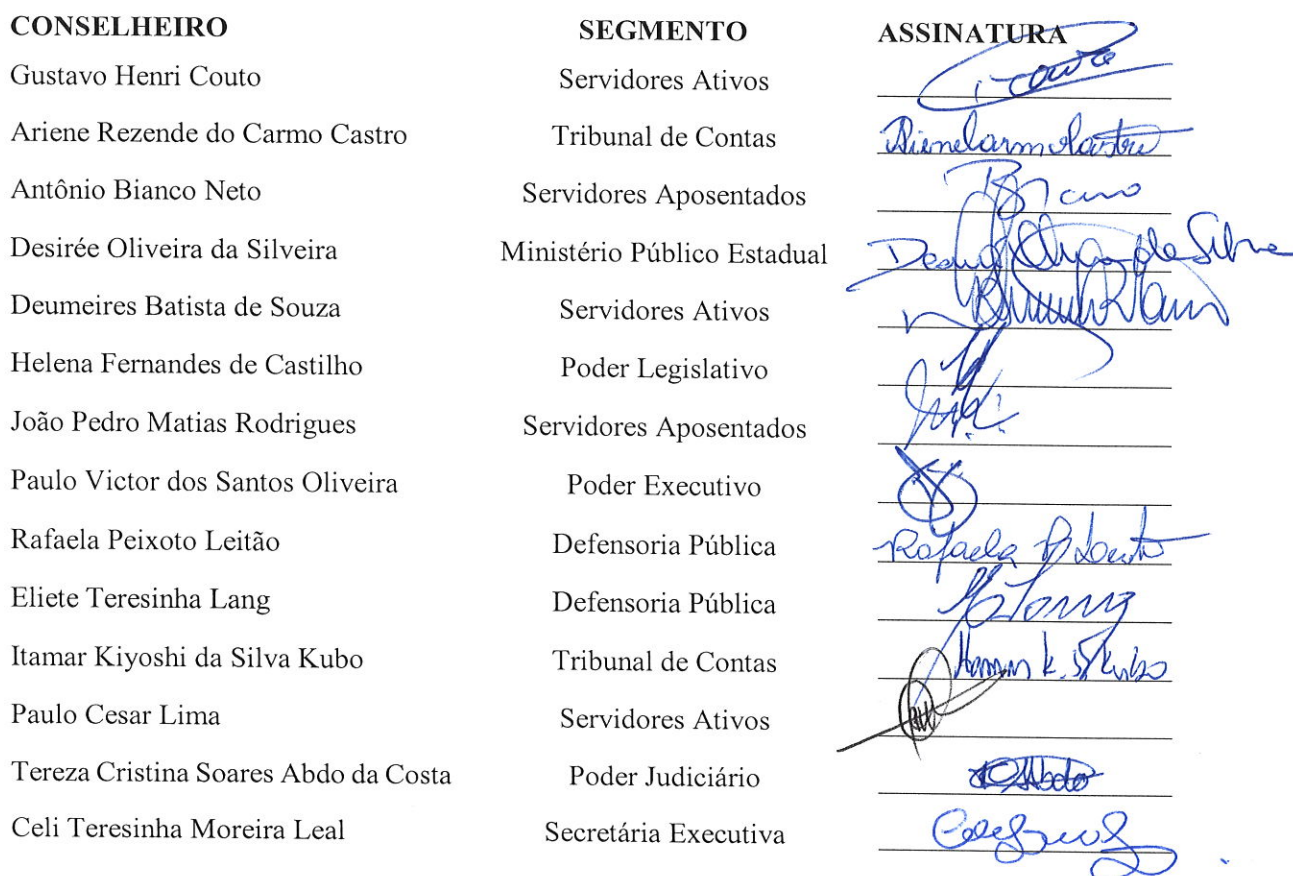 CONSELHEIRO SEGMENTO ASSINATURA
Gustavo Henri Couto Servidores Ativos Couto
Ariene Rezende do Carmo Castro Tribunal de Contas
Antônio Bianco Neto Servidores Aposentados
Desirée Oliveira da Silveira Ministério Público Estadual
Deumeires Batista de Souza Servidores Ativos
Helena Fernandes de Castilho Poder Legislativo
João Pedro Matias Rodrigues Servidores Aposentados
Paulo Victor dos Santos Oliveira Poder Executivo
Rafaela Peixoto Leitão Defensoria Pública Rafaela
Eliete Teresinha Lang Defensoria Pública
Itamar Kiyoshi da Silva Kubo Tribunal de Contas
Paulo Cesar Lima Servidores Ativos
Tereza Cristina Soares Abdo da Costa Poder Judiciário
Celi Teresinha Moreira Leal Secretária Executiva